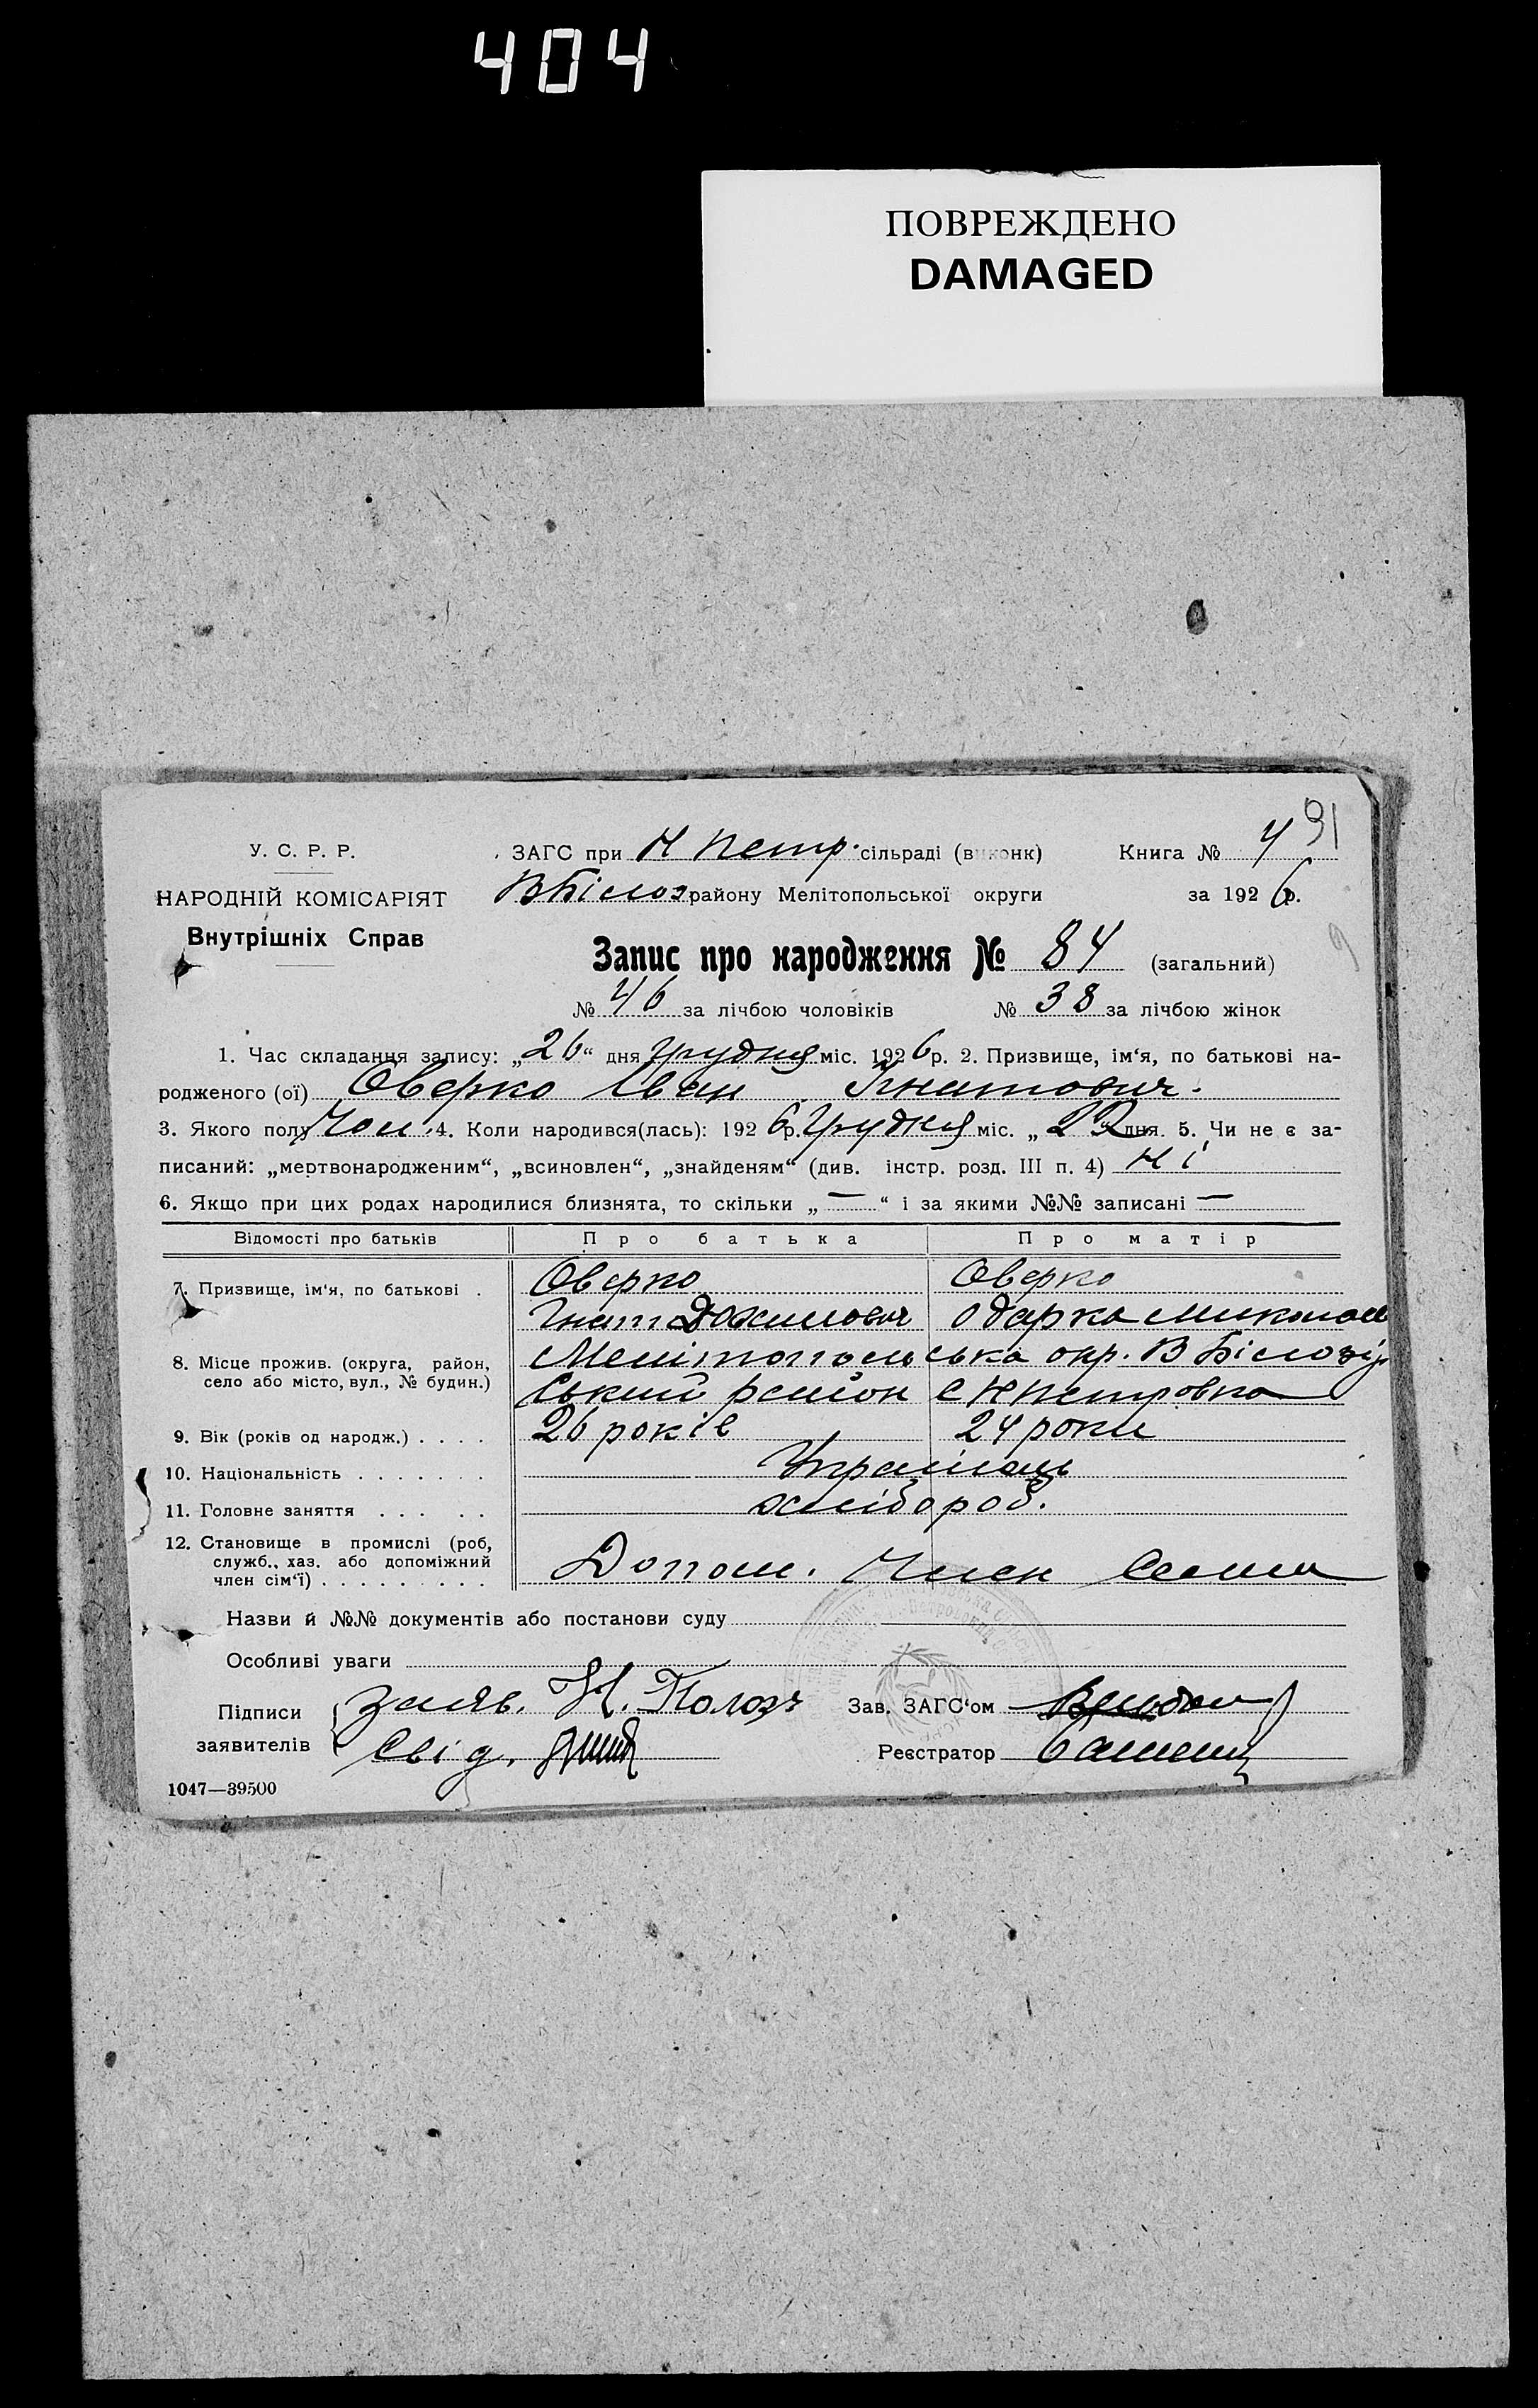 404
ПОВРЕЖДЕНО
DAMAGED
91
У. С. Р. Р.
ЗАГС при Н Петр. сільраді (виконк)
Книга № 4
НАРОДНІЙ КОМІСАРІЯТ
ВБілоз району Мелітопольської округи
за 1926 р.
Внутрішніх Справ
Запис про народження № 84 (загальний)
№ 46 за лічбою чоловіків № 38 за лічбою жінок
1. Час складання запису: „26“ дня Грудня міс. 1926 р. 2. Призвище, ім‘я, по батькові на-
родженого (ої) Оверко Іван Ігнатович.
3. Якого полу Чол. 4. Коли народився(лась): 1926 р. Грудня міс. „ 22 дня. 5. Чи не є за-
писаний: „мертвонародженим“, „всиновлен“, „знайденям“ (див. інстр. розд. III п. 4) Ні
6. Якщо при цих родах народилися близнята, то скільки „ — “ і за якими №№ записані —
Відомості про батьків
Про батька
Про матір
7. Призвище, ім‘я, по батькові .
Оверко
Оверко
Гнат
Одарка Микола
8. Місце прожив. (округа, район,
село або місто, вул., № будин.)
Мелітопольська окр. В Білозір
ський район с Н Петровка
9. Вік (років од народж.) . . . .
26 років
24 роки
10. Національність . . . . . . .
Українець
11. Головне заняття . . . . .
хлібороб.
12. Становище в промислі (роб,
служб., хаз. або допоміжний
член сім‘ї) . . . . . . . . .
Допом. Член Семи
Назви й №№ документів або постанови суду
Особливі уваги
Підписи
заявителів
Заяв. Н. Полозъ
Свід.
Зав. ЗАГС‘ом
Реєстратор
1047—39500